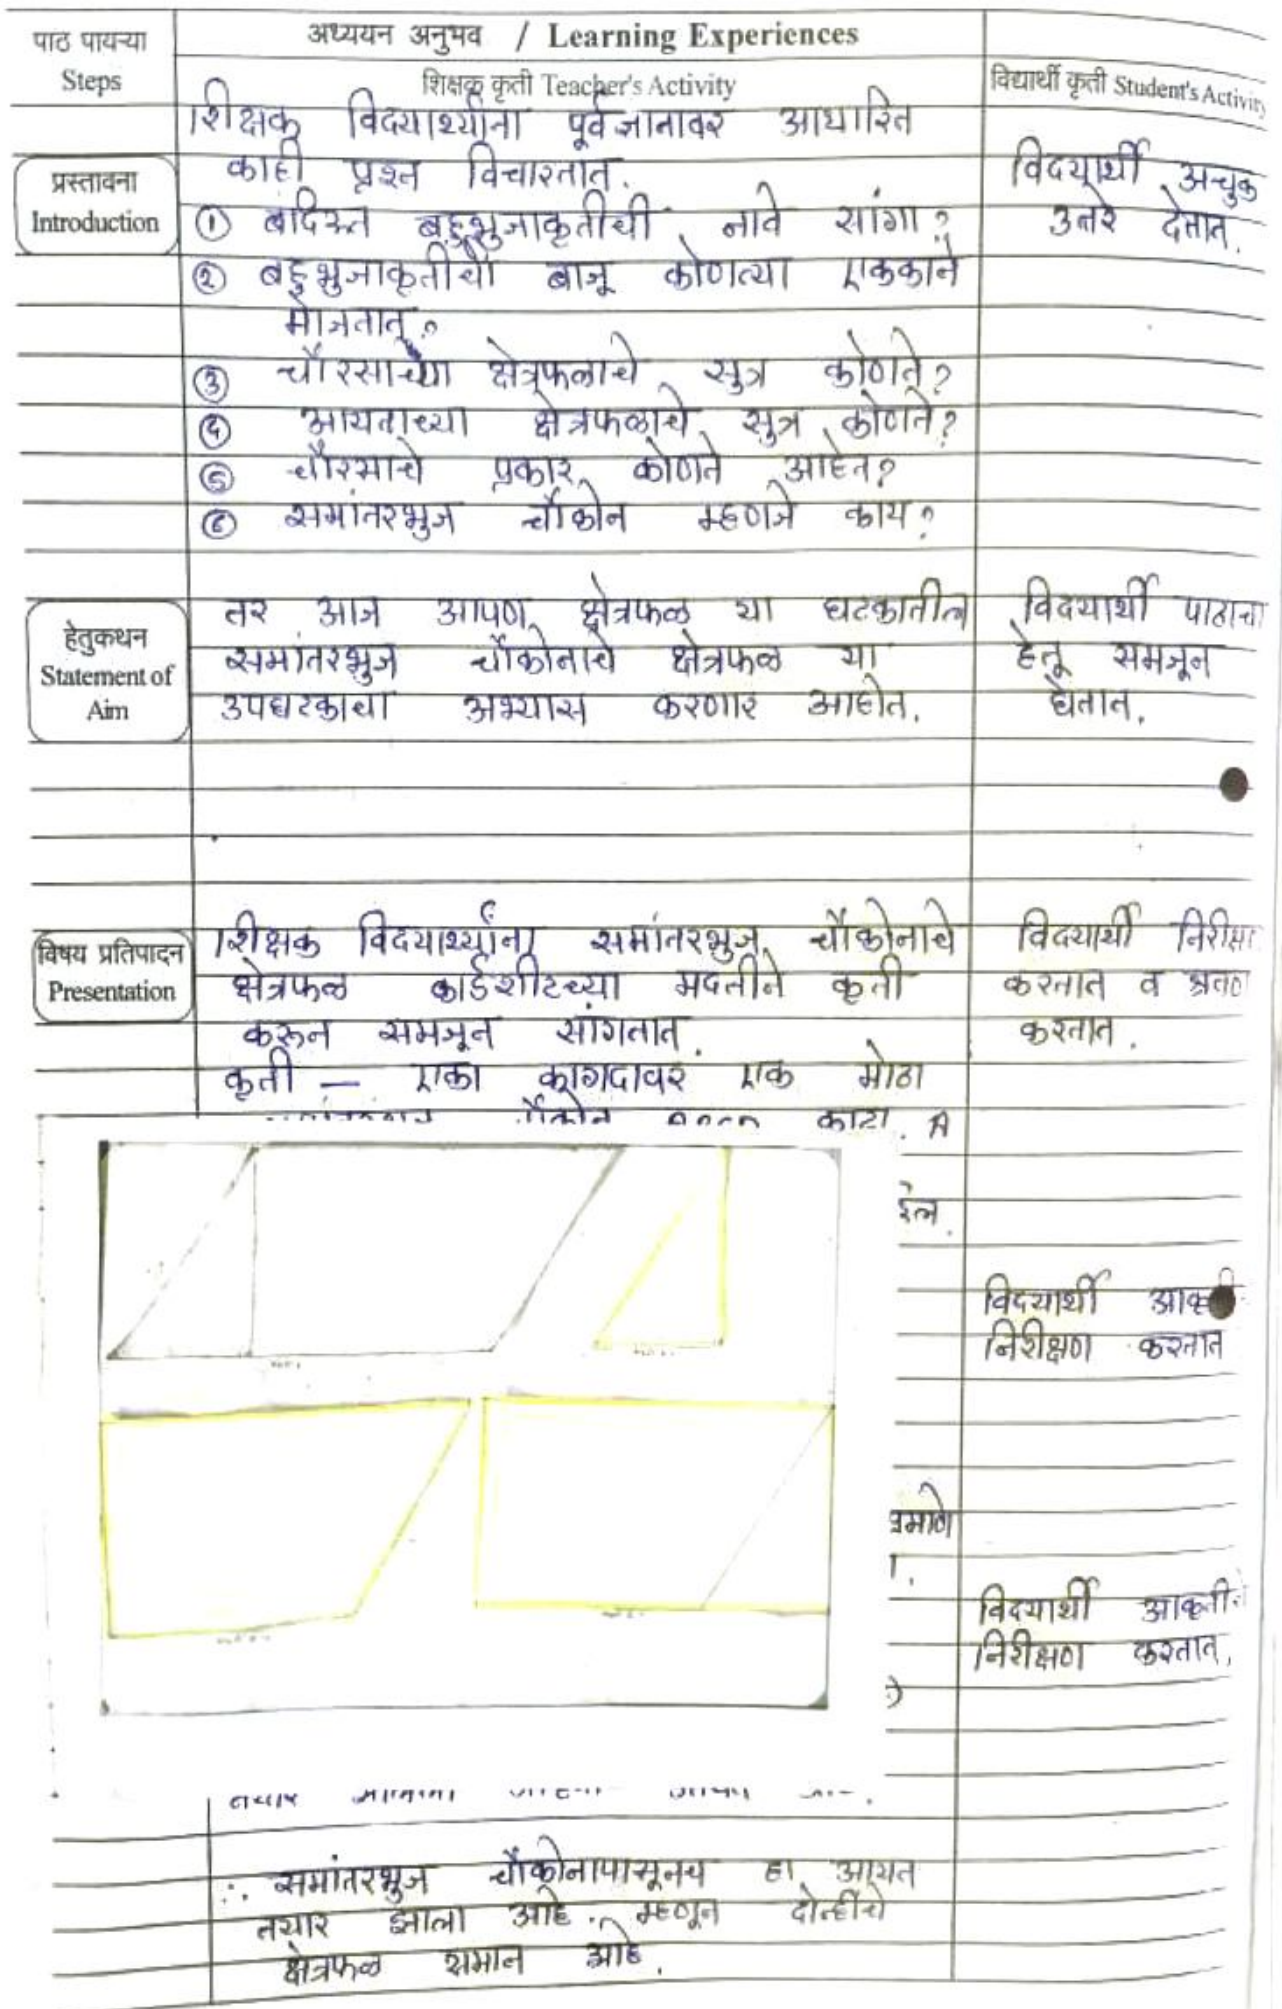 पाठ पायऱ्या
Steps
अध्ययन अनुभव / Learning Experiences
शिक्षक कृती Teacher's Activity
विद्यार्थी कृती Student's Activity
शिक्षक विदयार्थ्यांना पूर्वज्ञानावर आधारित
प्रस्तावना
Introduction
काही प्रश्न विचारतात.
① बंदिस्त बहुभुजाकृतीची नावे सांगा?
② बहुभुजाकृतीची बाजू कोणत्या एककाने
मोजतात?
③ चौरसाच्या क्षेत्रफळाचे सुत्र कोणते?
④ आयताच्या क्षेत्रफळाचे सुत्र कोणते?
⑤ चौरसाचे प्रकार कोणते आहेत?
⑥ समांतरभुज चौकोन म्हणजे काय?
विदयार्थी अचुक
उत्तरे देतात.
हेतुकथन
Statement of
Aim
तर आज आपण क्षेत्रफळ या घटकातील
समांतरभुज चौकोनाचे क्षेत्रफळ या
उपघटकाचा अभ्यास करणार आहोत.
विदयार्थी पाठाचा
हेतू समजून
घेतात.
विषय प्रतिपादन
Presentation
शिक्षक विदयार्थ्यांना समांतरभुज चौकोनाचे
क्षेत्रफळ कार्डशीटच्या मदतीने कृती
करून समजून सांगतात.
कृती — एका कागदावर एक मोठा
चौकोन काढा. A
विदयार्थी
करतात व श्रवण
करतात.
विदयार्थी
निरीक्षण करतात
विदयार्थी
निरीक्षण करतात.
∴ समांतरभुज चौकोनापासूनच हा आयत
तयार झाला आहे. म्हणून दोन्हींचे
क्षेत्रफळ समान आहे.